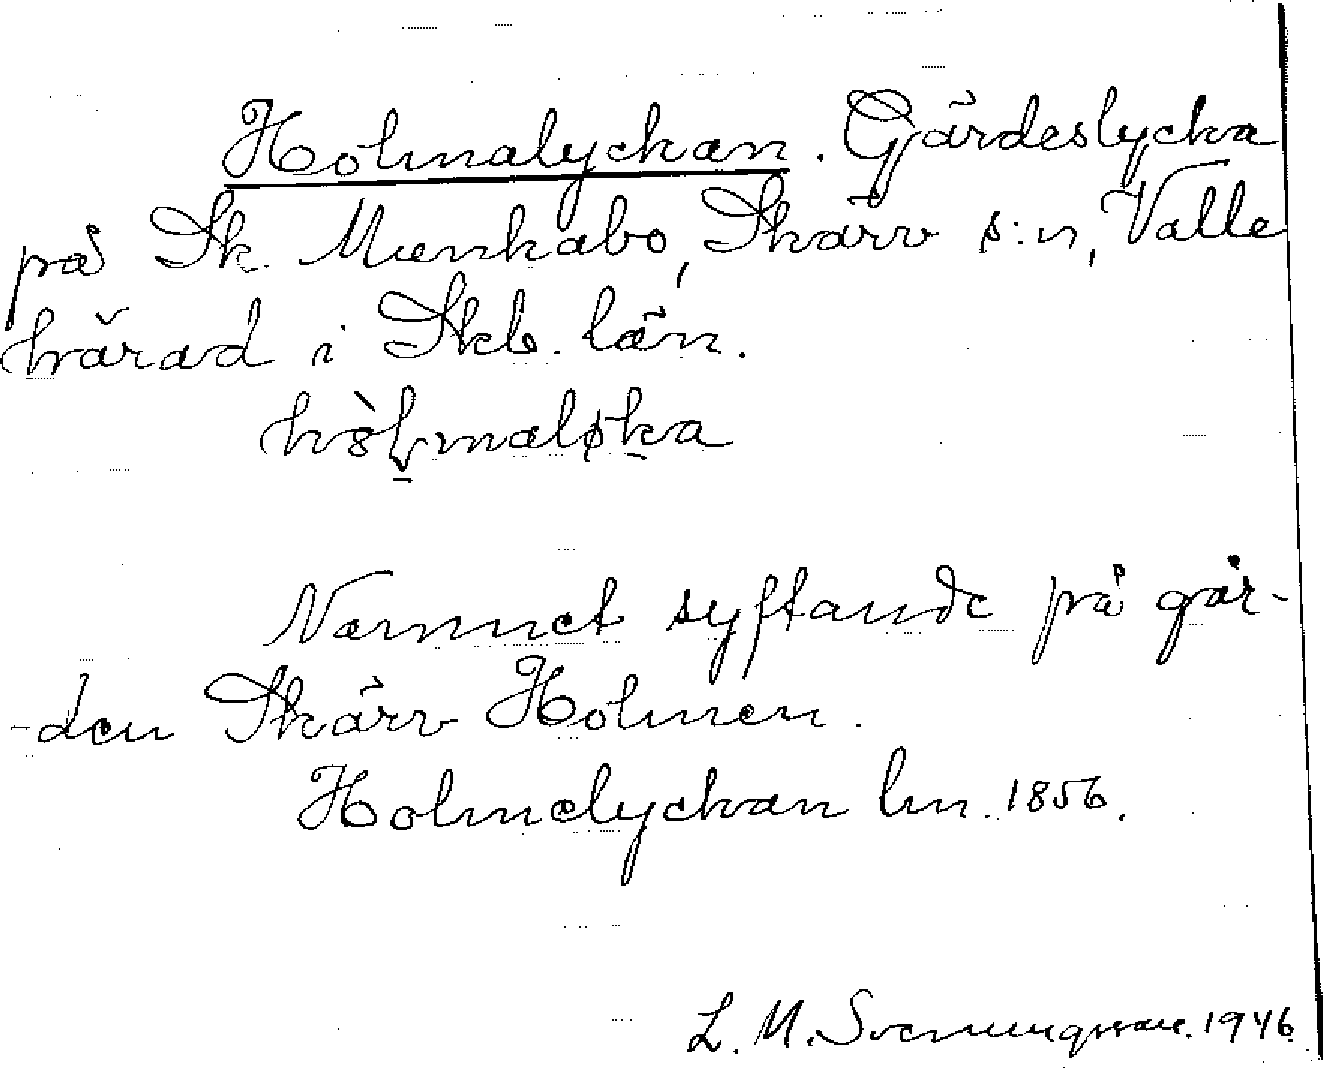 Holmalyckan. Gärdeslycka
på Sk. Munkabo, Skärv s:n, Valle
härad i Skb. län.
Namnet syftande på går-
-den Skärv Holmen.
Holmelyckan lm. 1856.
L. M. Svenungsson. 1946